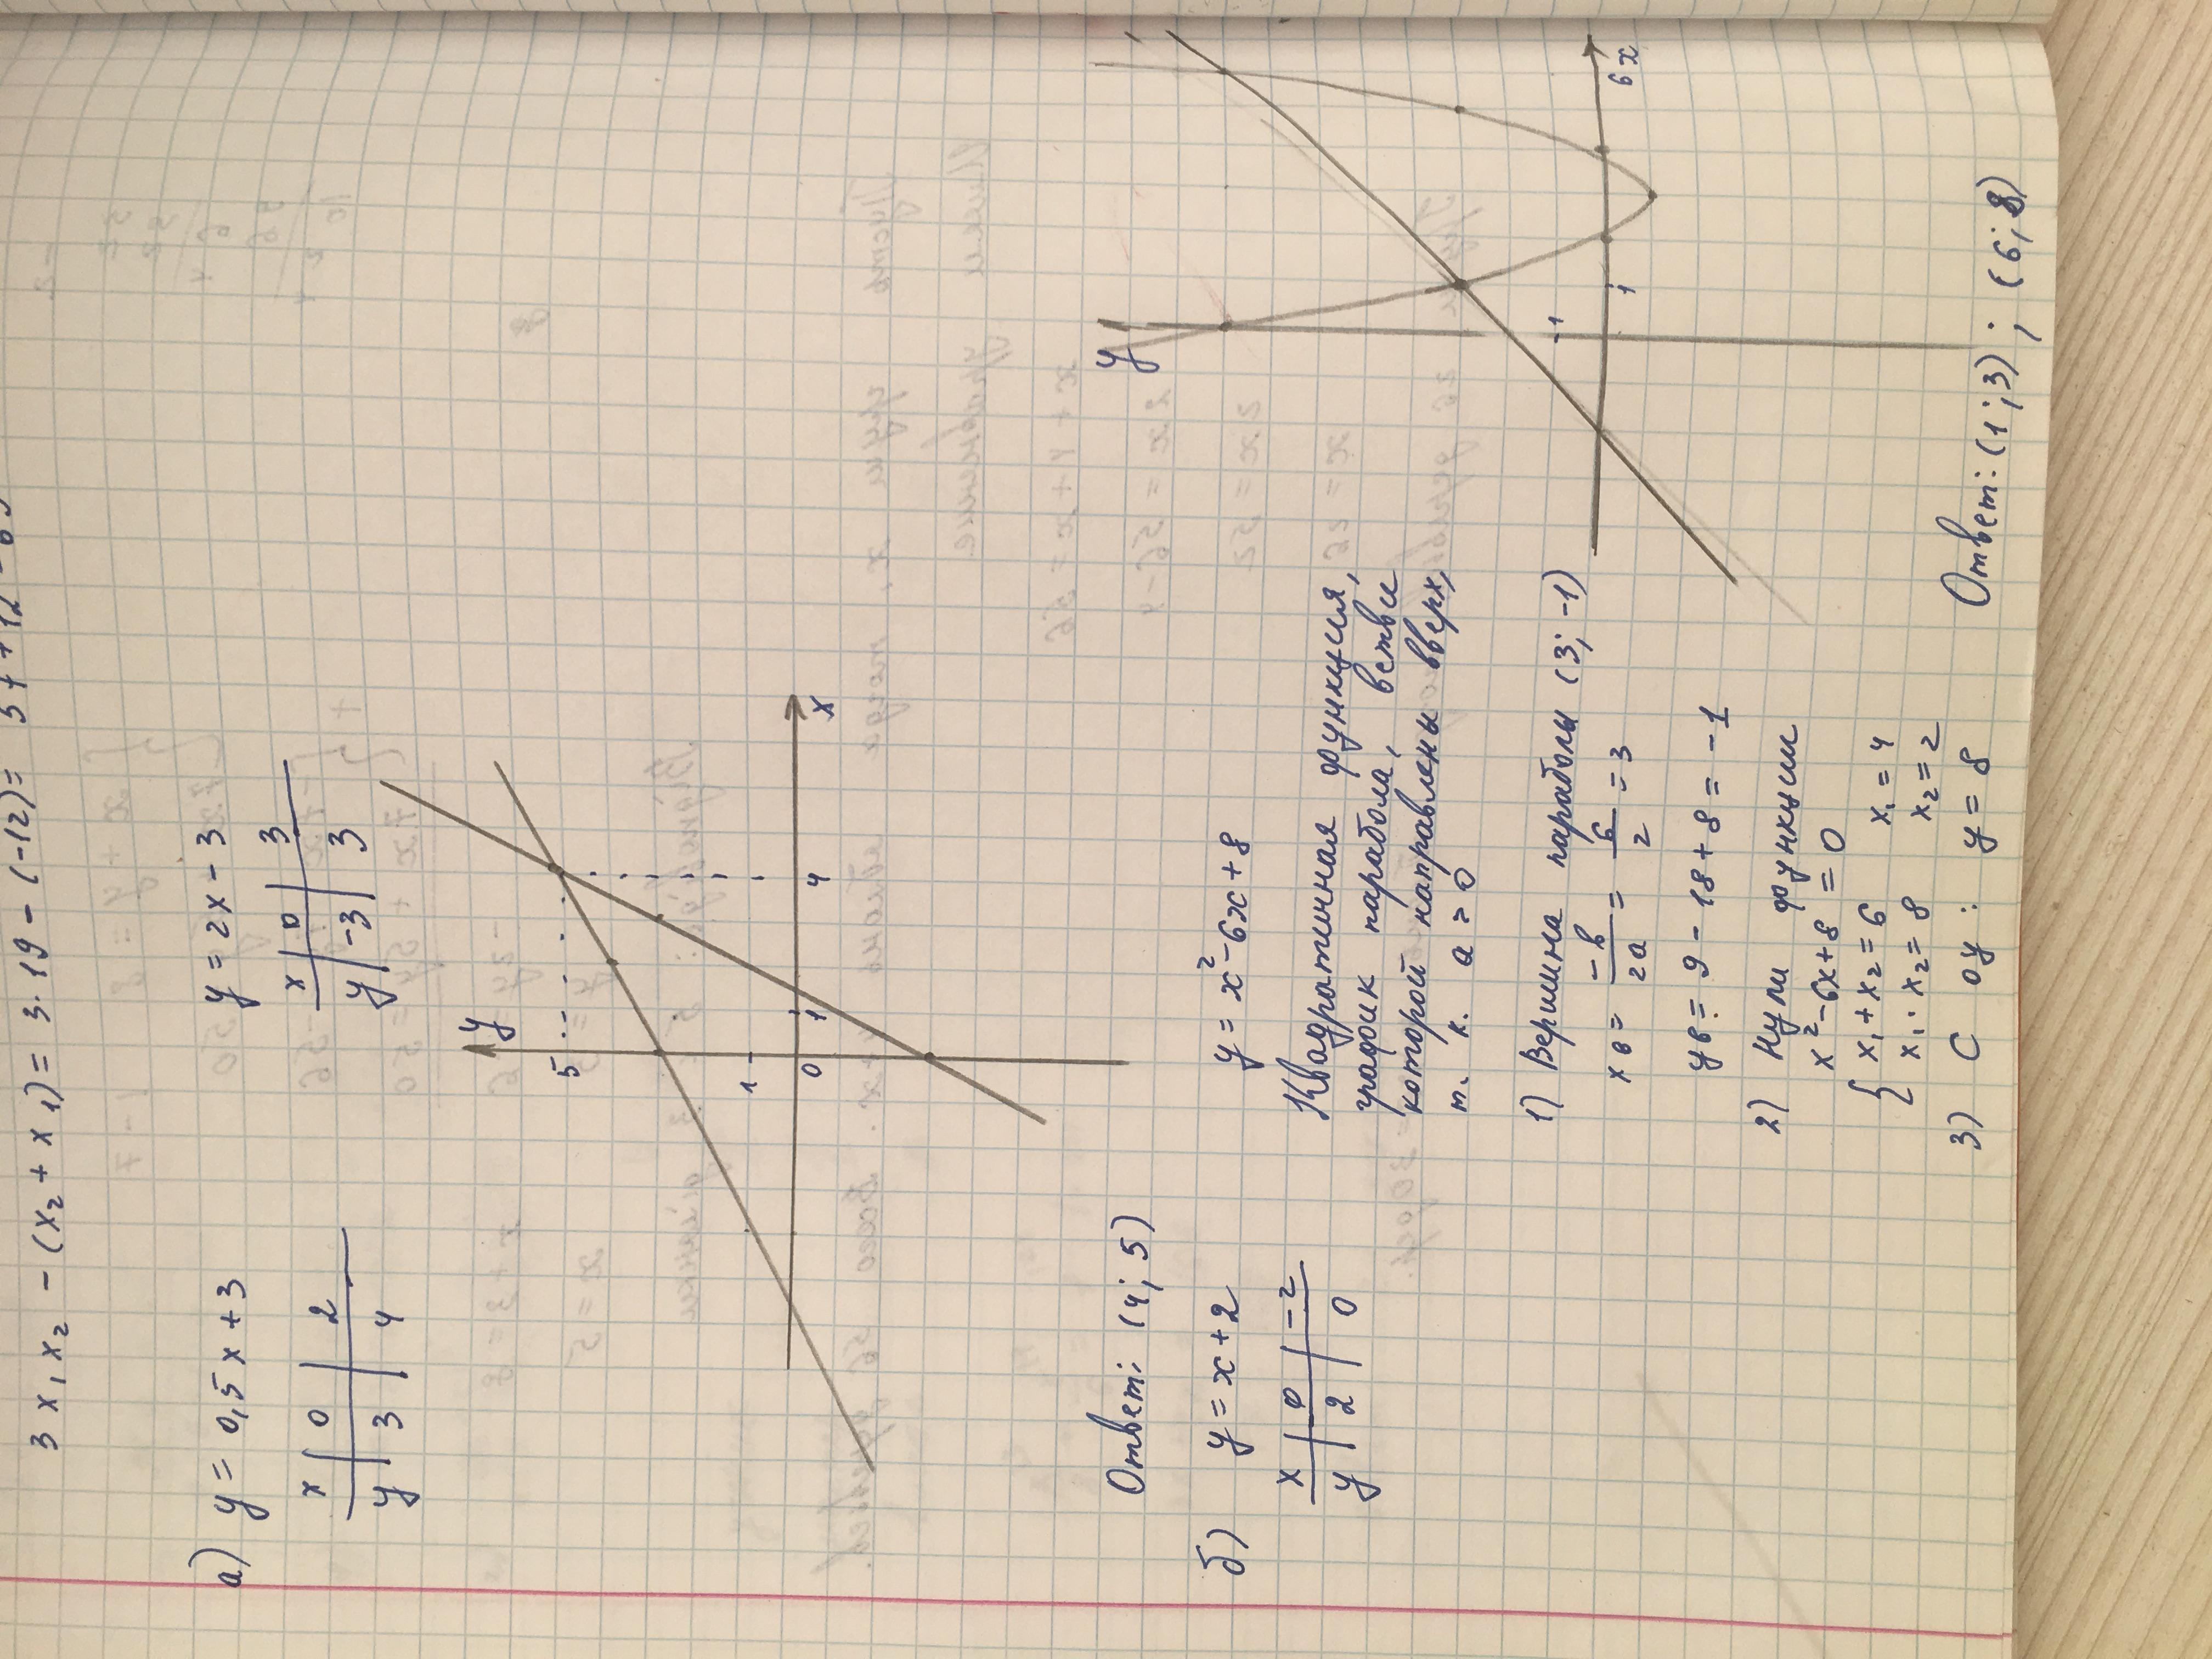 3x₁x₂ - (x₂ + x₁) = 3·19 - (-12) =
а) y = 0,5x + 3 y = 2x - 3
x 0 2 x 0 3
y 3 4 y -3 3
y
5
1
0 1 4 x
Ответ: (4; 5)
б) y = x + 2 y = x² - 6x + 8
x 0 -2
y 2 0
Квадратичная функция,
график парабола, ветви
которой направлены вверх,
т. к. a = 0
1) Вершина параболы (3; -1)
xв = -b/2a = 6/2 = 3
yв = 9 - 18 + 8 = -1
2) Нули функции
x² - 6x + 8 = 0
{ x₁ + x₂ = 6 x₁ = 4
x₁ · x₂ = 8 x₂ = 2
3) С oy: y = 8
y
1
1 6 x
Ответ: (1; 3); (6; 8)